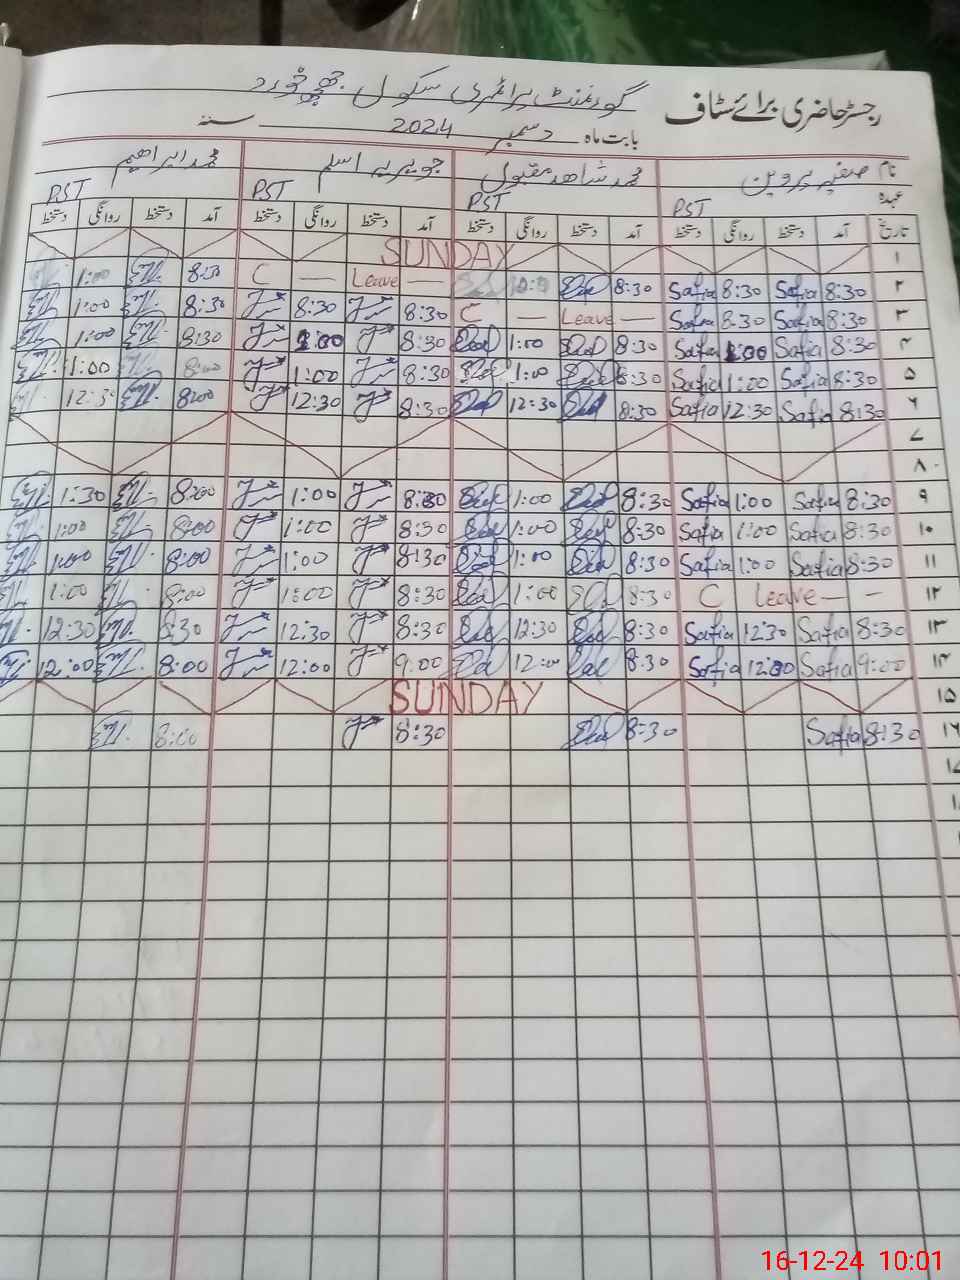 رجسٹر حاضری برائے سٹاف
گورنمنٹ پرائمری سکول
بابت ماہ دسمبر 2024 سنہ
نام صفیہ پروین محمد شاہد مقبول جویریہ اسلم محمد ابراھیم
عہدہ PST PST PST PST
تاریخ آمد دستخط روانگی دستخط آمد دستخط روانگی دستخط آمد دستخط روانگی دستخط آمد دستخط روانگی دستخط
۱ SUNDAY
۲ 8:30 Safia 8:30 Safia 8:30 — Leave — C 8:30 1:00
۳ 8:30 Safia 8:30 Safia — Leave — C 8:30 8:30 8:30 1:00
۴ 8:30 Safia 1:00 Safia 8:30 1:00 8:30 1:00 8:30 1:00
۵ 8:30 Safia 1:00 Safia 8:30 1:00 8:30 1:00 1:00
۶ 8:30 Safia 12:30 Safia 8:30 12:30 8:30 12:30 8:00 12:30
۷
۸
۹ 8:30 Safia 1:00 Safia 8:30 1:00 8:30 1:00 8:00 1:30
۱۰ 8:30 Safia 1:00 Safia 8:30 1:00 8:30 1:00 8:00 1:00
۱۱ 8:30 Safia 1:00 Safia 8:30 1:00 8:30 1:00 8:00 1:00
۱۲ — — Leave C 8:30 1:00 8:30 1:00 8:00 1:00
۱۳ 8:30 Safia 12:30 Safia 8:30 12:30 8:30 12:30 8:30 12:30
۱۴ 9:00 Safia 12:00 Safia 8:30 12:00 9:00 12:00 8:00 12:00
۱۵ SUNDAY
۱۶ 8:30 Safia 8:30 8:30 8:00
16-12-24 10:01